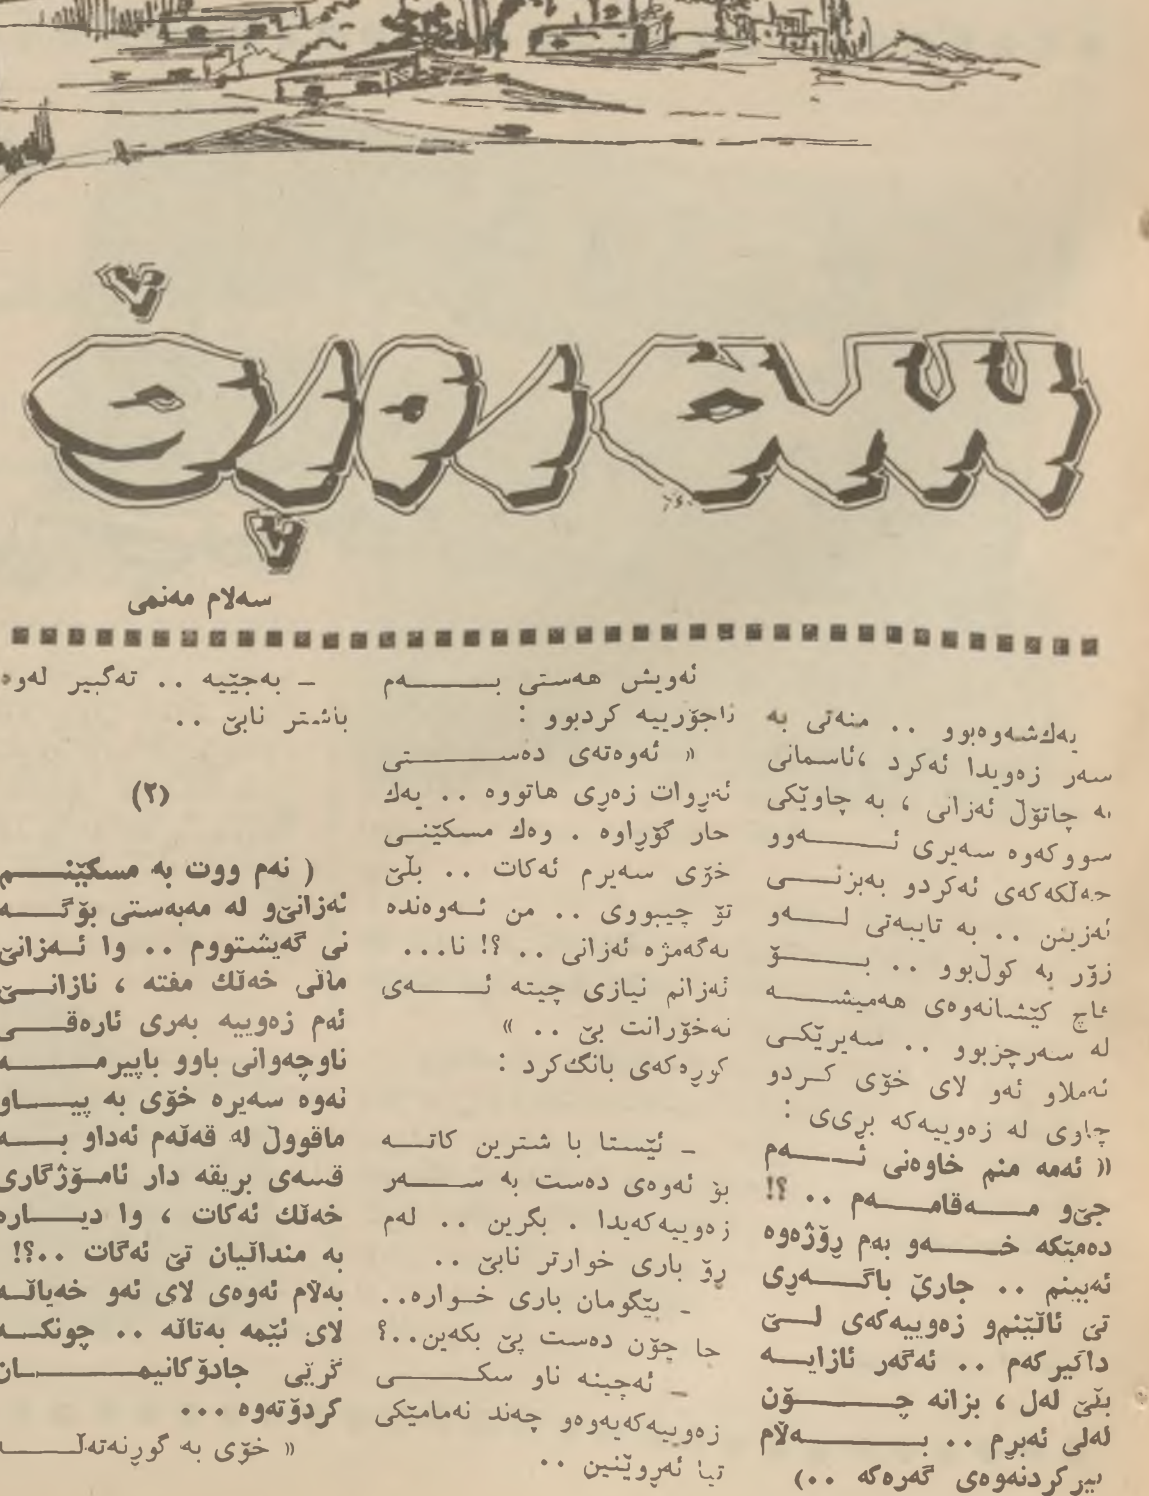 سەرەڕۆ
سەلام مەنمی
یەك شەوەبوو .. منەتی بە
سەر زەویدا ئەکرد ،ئاسمانی
بە چاتۆڵ ئەزانی ، بە چاوێکی
سووکەوە سەیری ئـــــەوو
خەڵکەکەی ئەکردو بەبزنـــی
ئەزینن .. بە تایبەتی لــــەو
زۆر بە کوڵ بوو .. بــــــۆ
ئاچ کێشانەوەی هەمیشــــە
لە سەرچزبوو .. سەیرێکــی
ئەملاو ئەو لای خۆی کــردو
چاوی لە زەوییەکە بڕیی :
« ئەمە منم خاوەنی ئـــەم
جێ‌و مـــەقامـــەم .. ؟!
دەمێکە خـــــەو بەم ڕۆژەوە
ئەبینم .. جارێ باگــــەڕی
تێ ئاڵێنم‌و زەوییەکەی لـــێ
داگیرکەم .. ئەگەر ئازایــــە
بڵێ لەل ، بزانە چــــــۆن
لەلی ئەبڕم .. بــــــــەڵام
بیرکردنەوەی گەرەکە ..)
ئەویش هەستی بـــــــەم
ناجۆرییە کردبوو :
« ئەوەتەی دەســــــــتی
ئەڕوات زەڕی هاتووە .. یەك
جار گۆڕاوە . وەك مسکێنــی
خۆی سەیرم ئەکات .. بڵێ
تۆ چیبووی .. من ئــەوەندە
بەگەمژە ئەزانی .. ؟! نا...
ئەزانم نیازی چیتە ئــــەی
نەخۆرانت بێ .. »
کوڕەکەی بانگ کرد :
ــ ئێستا با شترین کاتـــە
بۆ ئەوەی دەست بە ســــەر
زەوییەکەیدا . بگرین .. لەم
ڕۆ باری خوارتر نابێ ..
ــ بێگومان باری خــوارە..
جا چۆن دەست پێ بکەین..؟
ــ ئەچینە ناو سکـــــــی
زەوییەکەیەوەو چەند نەمامێکی
تیا ئەڕوێنین ..
ــ بەجێیە .. تەگبیر لەوە
باشتر نابێ ..
(٢)
( ئەم ووت بە مسکێنـــــم
ئەزانێ‌و لە مەبەستی بۆگـــە
نی گەیشتووم .. وا ئــەزانێ
ماڵی خەڵك مفتە ، نازانــــێ
ئەم زەوییە بەری ئارەقـــــی
ناوچەوانی باوو باپیرمـــــــە
ئەوە سەیرە خۆی بە پیــــاو
ماقووڵ لە قەڵەم ئەداو بــــە
قسەی بریقە دار ئامـۆژگاری
خەڵك ئەکات ، وا دیـــــارە
بە منداڵیان تێ ئەگات ..؟!
بەڵام ئەوەی لای ئەو خەیاڵــە
لای ئێمە بەتاڵە .. چونکــــە
گرێی جادۆکانیمــــــــــان
کردۆتەوە ...
« خۆی بە گوڕنەتەڵــــــە